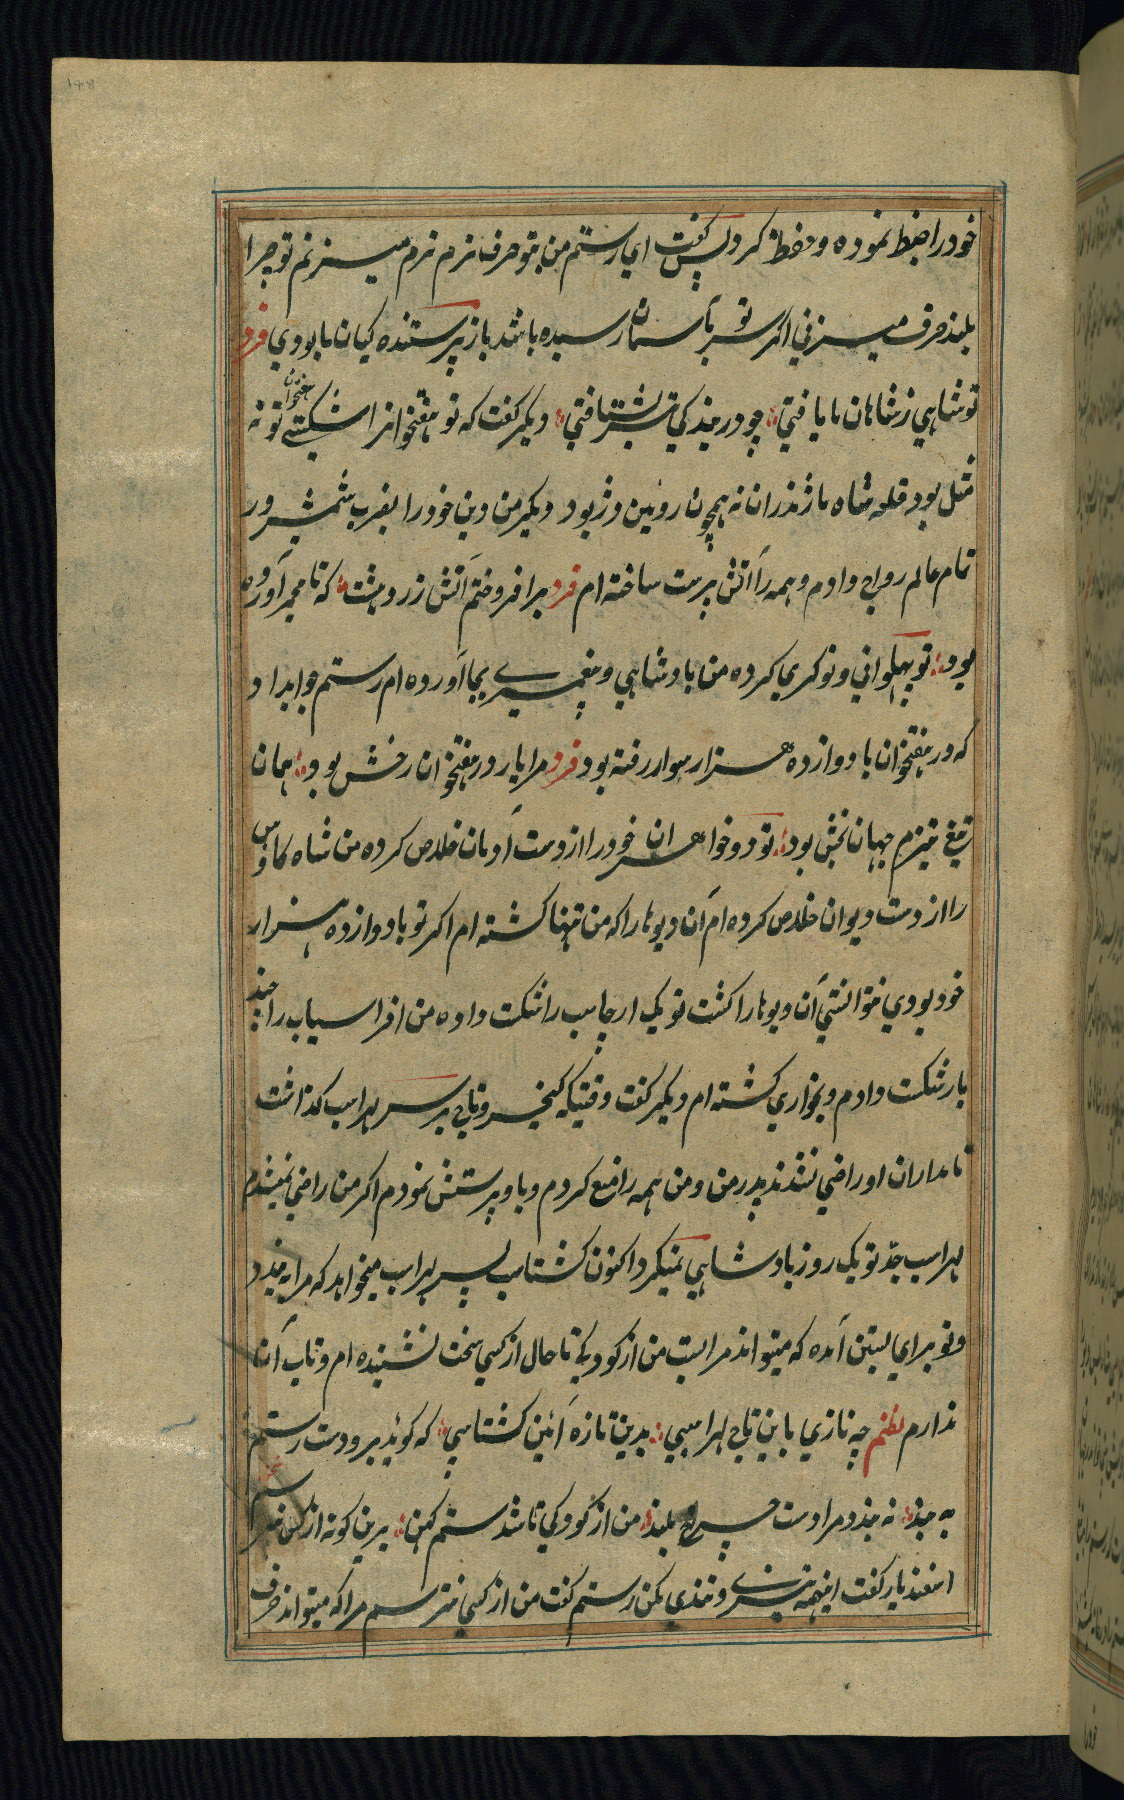 خود را ضبط نموده و حفظ کرد پس گفت ای رستم من بتو حرف نرم نرم میزنم تو چرا
بلند حرف میزنی اکر سر تو بآسمان رسیده باشد باز پرستنده کیان ما بودی فرد
تو شاهی ز شاهان ما یافتی چو در بندکی تیز بشتافتی دیکر کفت که تو هفتخوانرا شکستی تو نه
مثل بود قلعه شاه ماژندران نه همچون روئین دژ بود دیکر من دین خود را بضرب شمشیر در
تمام عالم رواج دادم و همه را آتش پرست ساخته ام فرد برافروختم آتش زردهشت که تا مجمر آورده
بود تو پهلوانی و نوکری کرده من بادشاهی و پیغمبری بجا آورده ام رستم جوابداد
که در هفتخوان با دوازده هزار سوار رفته بود فرد مرا یار در هفتخوان رخش بود همان
تیغ تیزم جهان بخش بود تو دو خواهران خود را از دست آدمان خلاص کرده من شاه کاوس
را از دست دیوان خلاص کرده ام آن دیوها را که من تنها کشته ام اکر تو با دوازده هزار
خود بودی نتوانستی آن دیوها را کشت تو یک ارجاسب را شکست داده من افراسیاب را چند
بار شکست دادم و بخواری کشته ام دیکر کفت وقتیکه کیخسرو تاج بر سر لهراسب کذاشت
نامداران او راضی نشدند پدر من و من همه را منع کردم و باو پرستش نمودم اکر من راضی نمیشدم
لهراسب جد تو یک روز بادشاهی نمیکرد اکنون کشتاسب پسر لهراسب میخواهد که مرا به بندد
و تو برای بستن آمده که میتواند مرا بست من از کودکی تا حال از کسی سخت نشنیده ام و تاب آن
ندارم نظم چه نازی باین تاج لهراسبی بدین تازه آئین کشتاسبی که کوید برو دست رستم
به بند نه بندد مرا دست چرخ بلند من از کودکی تا شدستم کهن برین کونه از کس نبردم سخن
اسفندیار کفت اینهمه تیزی و تندی مکن رستم کفت من از کسی نترسم مرا که میتواند حرف